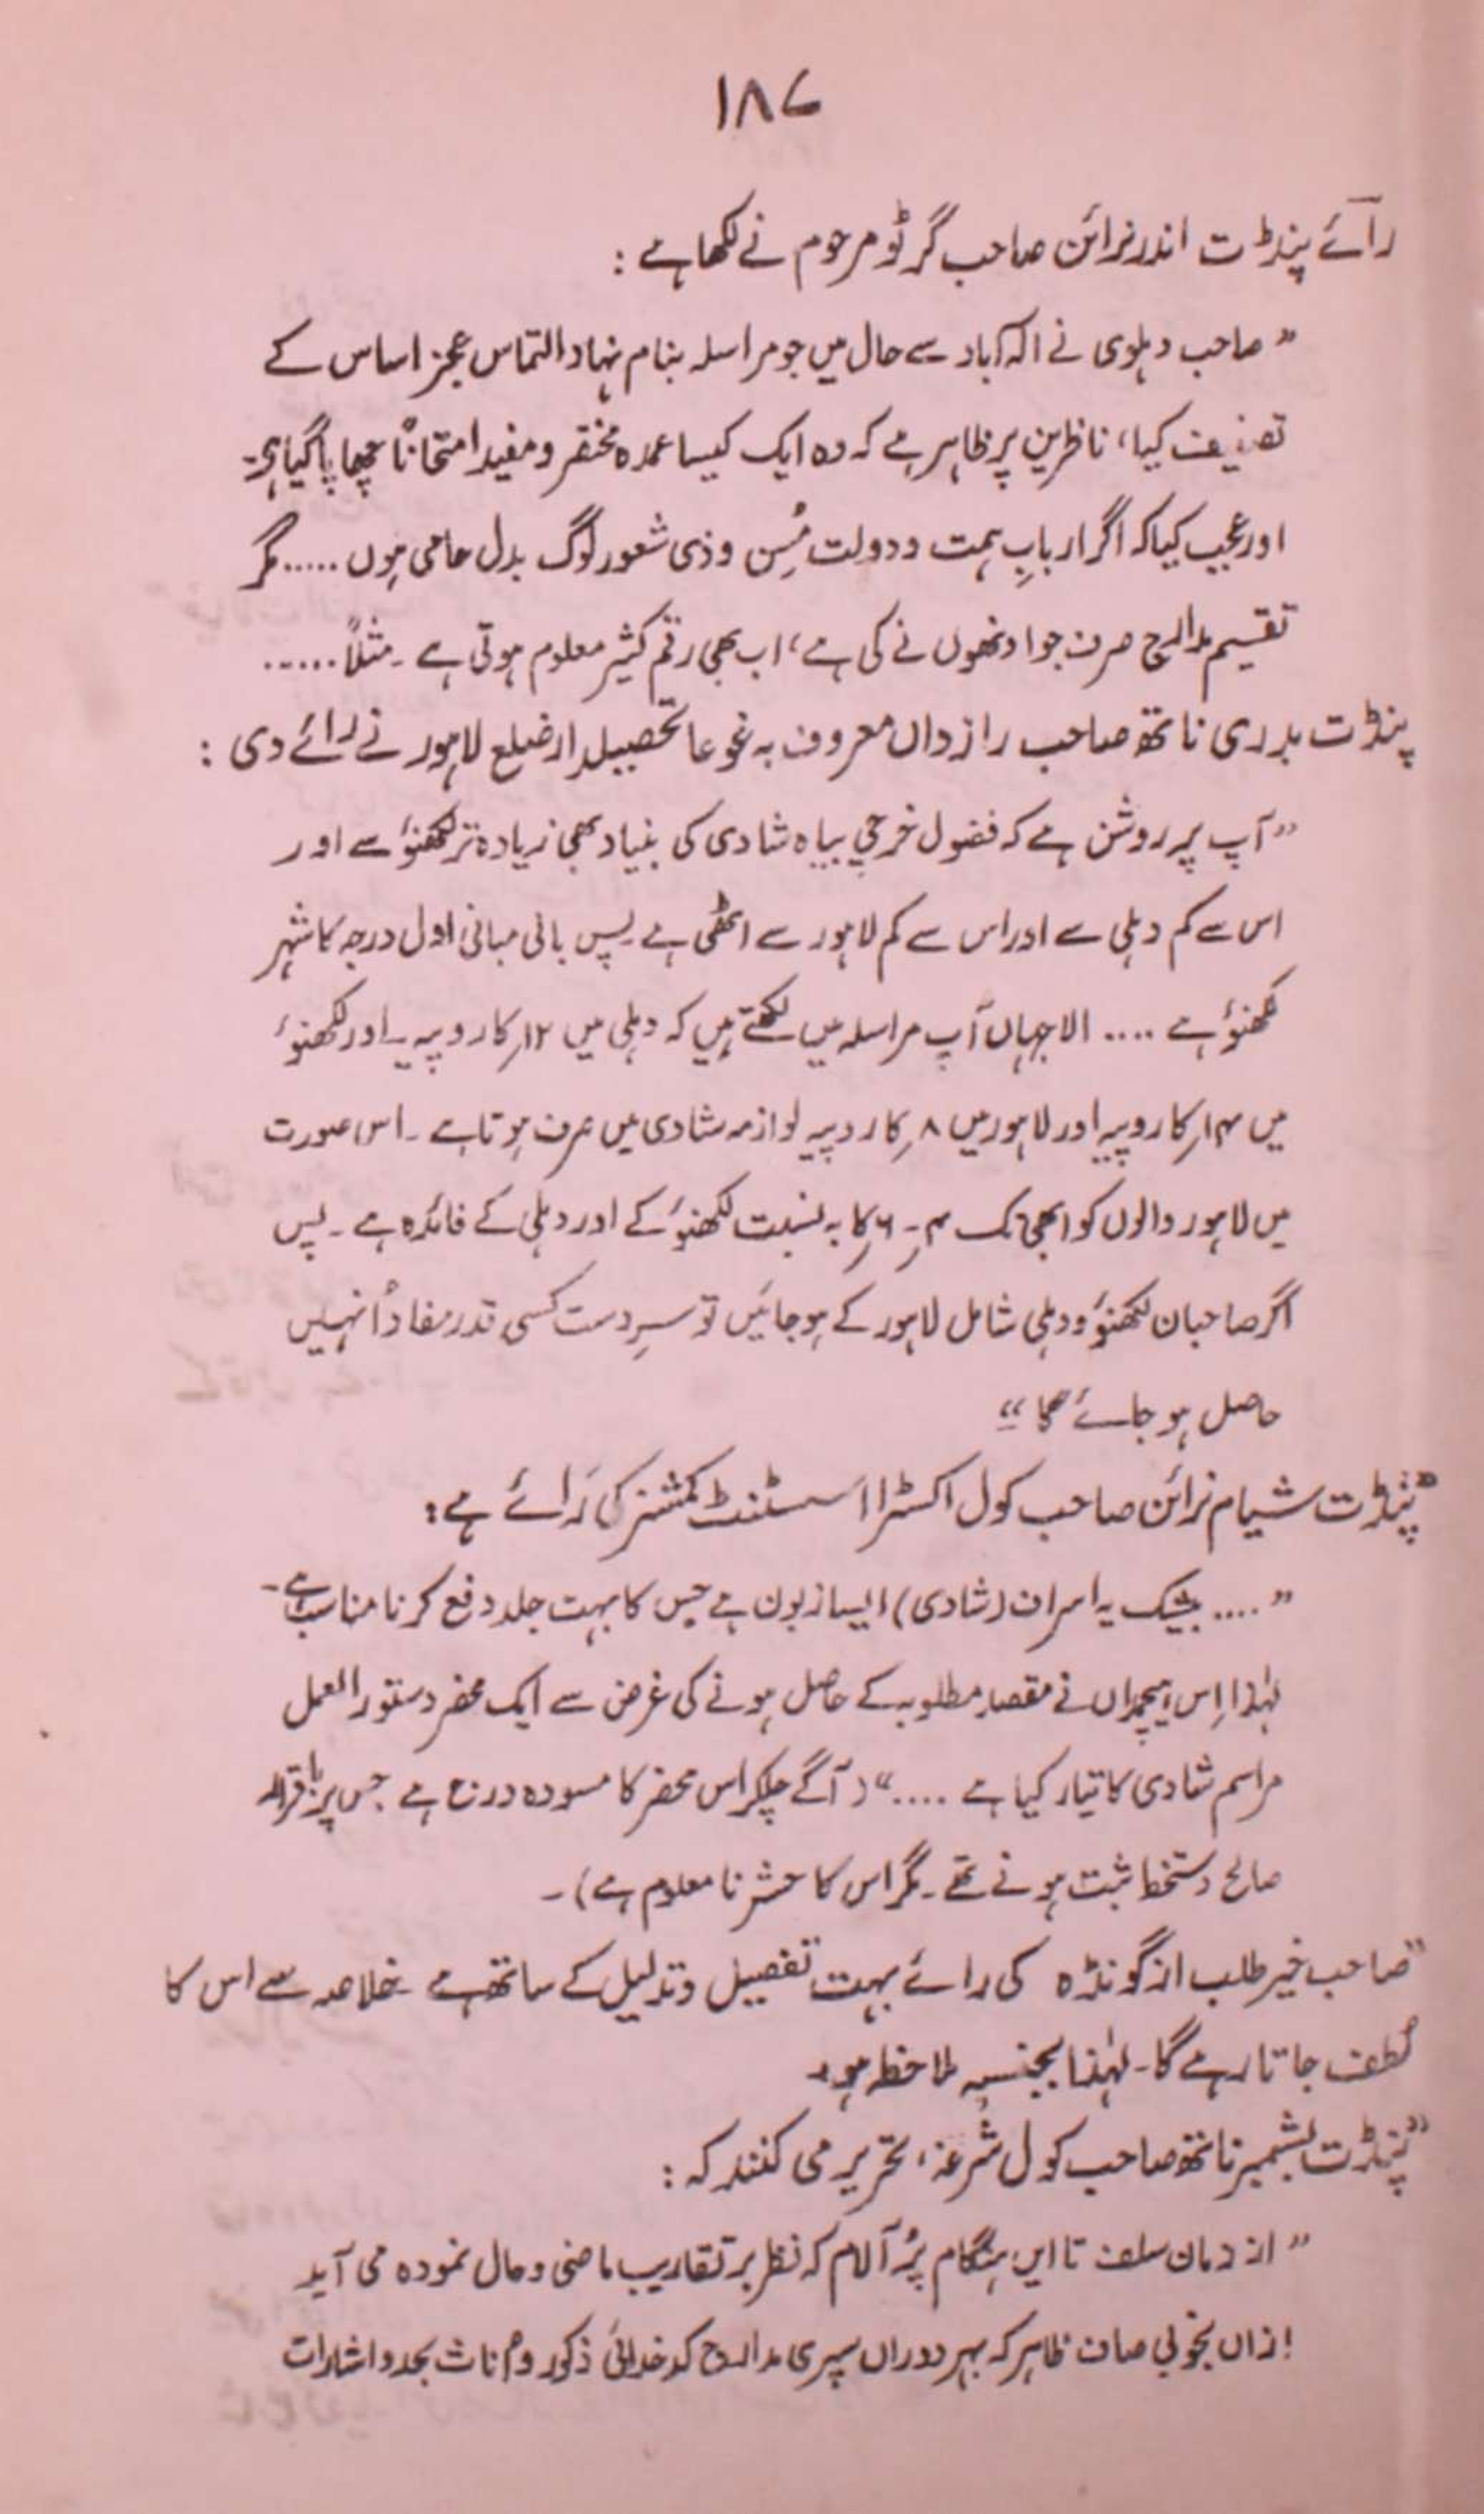 ۱۸۷
رائے پنڈت اندر نرائن صاحب گرٹو مرحوم نے لکھا ہے :
” صاحب دہلوی نے الہ آباد سے حال میں جو مراسلہ بنام نہاد التماس عجز اساس کے
تصنیف کیا، ناظرین پر ظاہر ہے کہ وہ ایک کیسا عمدہ مختصر و مفید امتحاناً چھاپا گیا ہے۔
اور عجیب کیا کہ اگر اربابِ ہمت و دولت مُسِن و ذی شعور لوگ بدل حامی ہوں ..... مگر
تقسیم مدارج صرف جو اونھوں نے کی ہے، اب بھی رقم کثیر معلوم ہوتی ہے ۔ مثلاً ......
پنڈت بدری ناتھ صاحب رازداں معروف بہ غوعا تحصیلدار ضلع لاہور نے رائے دی :
” آپ پر روشن ہے کہ فضول خرچی بیاہ شادی کی بنیاد بھی زیادہ تر لکھنؤ سے اور
اس سے کم دہلی سے اور اس سے کم لاہور سے اٹھی ہے پس بانی مبانی اول درجہ کا شہر
لکھنؤ ہے .... الا جہاں آپ مراسلہ میں لکھتے ہیں کہ دہلی میں ۱۲ر کا روپیہ ۔ اور لکھنؤ
میں ۱۴ر کا روپیہ اور لاہور میں ۸ر کا روپیہ لوازمہ شادی میں صرف ہوتا ہے ۔ اس صورت
میں لاہور والوں کو ابھی تک ۴ر ۔ ۶ر کا بہ نسبت لکھنؤ کے اور دہلی کے فائدہ ہے ۔ پس
اگر صاحبان لکھنؤ و دہلی شامل لاہور کے ہو جائیں تو سرِدست کسی قدر مفاد اُنہیں
حاصل ہو جائے گا “
” پنڈت شیام نرائن صاحب کول اکسٹرا اسسٹنٹ کمشنر کی رائے ہے :
” .... بیشک یہ اسراف (شادی) ایسا زبون ہے جس کا بہت جلد دفع کرنا مناسب ہے ۔
لہٰذا اِس ہیچمداں نے مقصدِ مطلوبہ کے حاصل ہونے کی غرض سے ایک محضر دستور العمل
مراسم شادی کا تیار کیا ہے ....“ (آگے چلکر اس محضر کا مسودہ درج ہے جس پر باقرار
صالح دستخط ثبت ہونے تھے ۔ مگر اس کا حشر نا معلوم ہے) ۔
” صاحب خیر طلب از گونڈہ کی رائے بہت تفصیل و تدلیل کے ساتھ ہے ۔ خلاصہ سے اس کا
لطف جاتا رہے گا ۔ لہٰذا بجنسہٖ ملاحظہ ہو ۔
” پنڈت بشمبر ناتھ صاحب کول شرغہ، تحریر می کنند کہ :
” از دمان سلف تا ایں ہنگام پُر آلام کہ نظر بر تقاریب ماضی و حال نمودہ می آید
ازاں بخوبی صاف ظاہر کہ بہر دوراں سپری مدارج کدخدائی ذکور و اناث بحد و اشارات